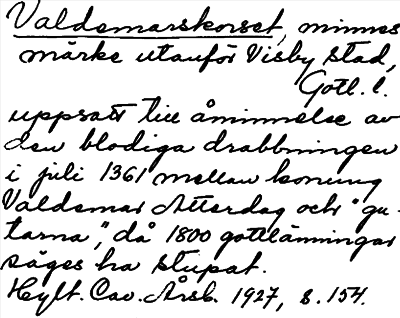 Valdemarskorset, minnes
märke utanför Visby stad,
Gotl. l.
uppsatt till åminnelse av
den blodiga drabbningen
i juli 1361 mellan konung
Valdemar Atterdag och "gu-
tarna", då 1800 gottlänningar
säges ha stupat.
Hylt. Cav. Årsb. 1927, s. 154.